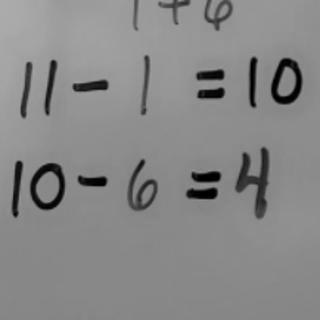 1+6
11 - 1 = 10
10 - 6 = 4